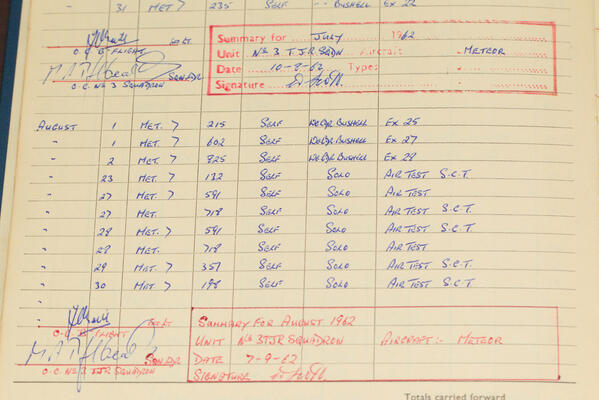 31 MET. 7 235 SELF BUSHELL EX 22
Summary for JULY 1962
Unit No 3 T.J.R. SQDN Aircraft - METEOR
Date 10-8-62 Type:
Signature
O.C. B-FLIGHT
SQN LDR
O.C. No 3 SQUADRON
AUGUST 1 MET. 7 215 SELF BUSHELL EX 25
" 1 MET. 7 602 SELF BUSHELL EX 27
" 2 MET. 7 825 SELF BUSHELL EX 28
" 23 MET. 7 132 SELF SOLO AIR TEST S.C.T.
" 27 MET. 7 591 SELF SOLO AIR TEST
" 27 MET. 718 SELF SOLO AIR TEST
" 28 MET. 7 591 SELF SOLO AIR TEST S.C.T.
" 28 MET. 718 SELF SOLO AIR TEST
" 29 MET. 7 357 SELF SOLO AIR TEST S.C.T.
" 30 MET. 7 198 SELF SOLO AIR TEST S.C.T.
"
SUMMARY FOR AUGUST 1962
UNIT No 3 TJR SQUADRON AIRCRAFT:- METEOR
DATE 7-9-62
SIGNATURE
O.C. B FLIGHT
SQN LDR
O.C. No 3 TJR SQUADRON
Totals carried forward